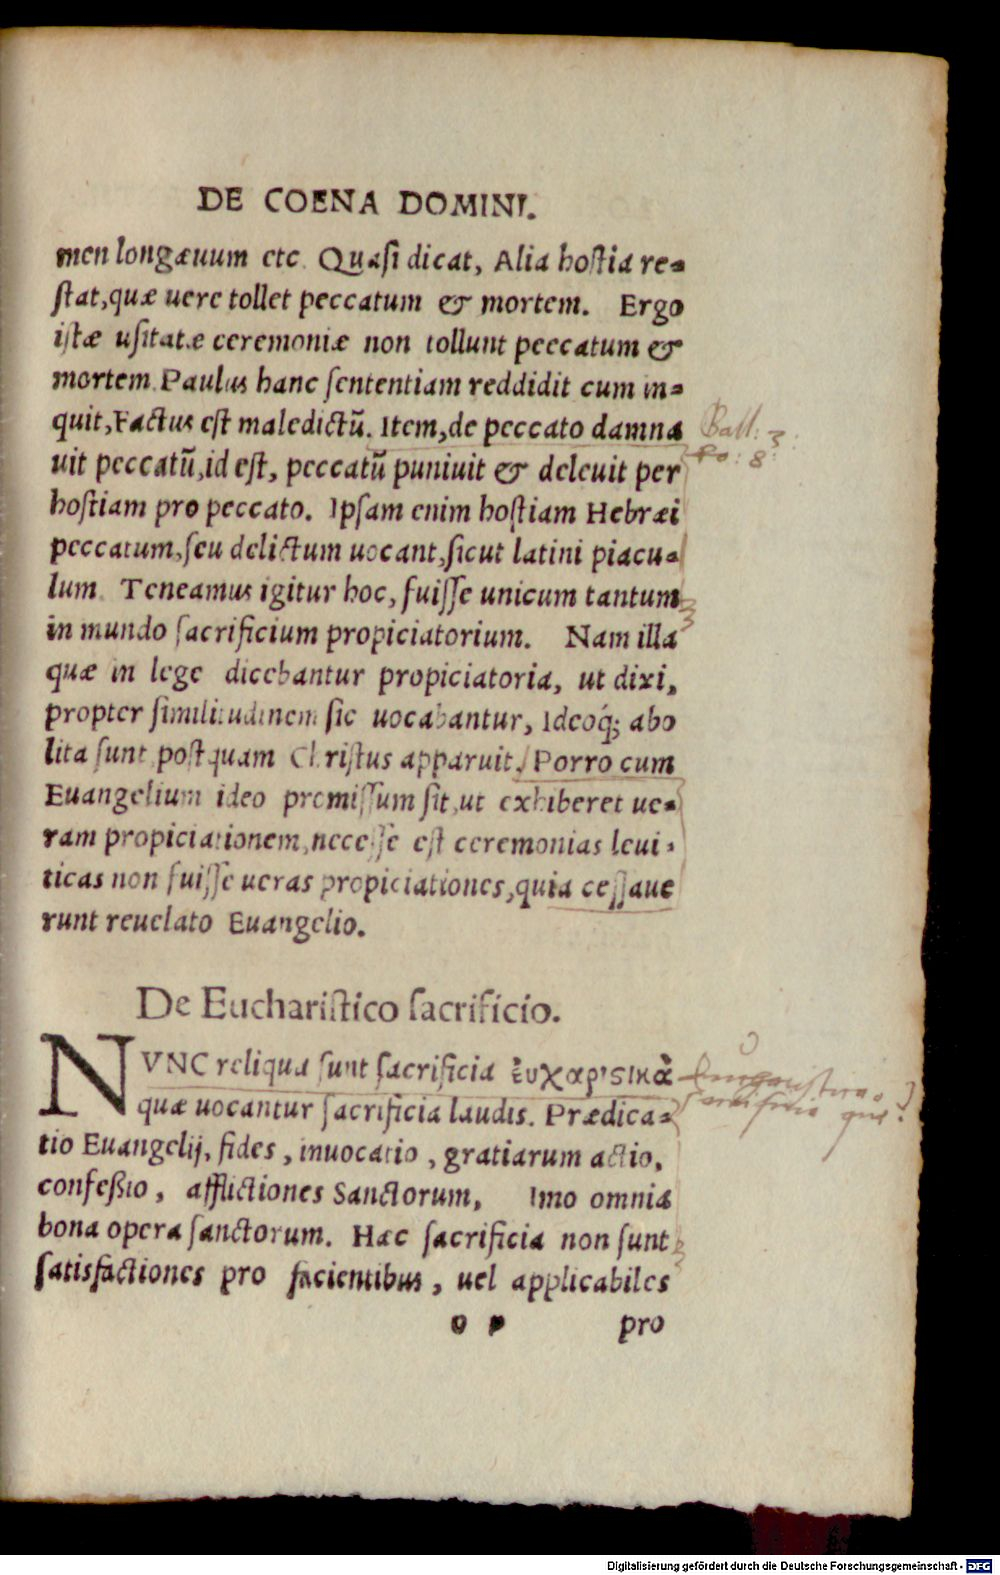 DE COENA DOMINI.
men longæuum etc. Quasi dicat, Alia hostia re-
stat, quæ uere tollet peccatum & mortem. Ergo
istæ usitatæ ceremoniæ non tollunt peccatum &
mortem. Paulus hanc sententiam reddidit cum in-
quit, Factus est maledictũ. Item, de peccato damna
uit peccatũ, id est, peccatũ puniuit & deleuit per
hostiam pro peccato. Ipsam enim hostiam Hebræi
peccatum, seu delictum uocant, sicut latini piacu-
lum. Teneamus igitur hoc, fuisse unicum tantum
in mundo sacrificium propiciatorium. Nam illa
quæ in lege dicebantur propiciatoria, ut dixi,
propter similitudinem sic uocabantur, Ideoq́; abo
lita sunt postquam Christus apparuit. Porro cum
Euangelium ideo promissum sit, ut exhiberet ue-
ram propiciationem, necesse est ceremonias leui-
ticas non fuisse ueras propiciationes, quia cessaue
runt reuelato Euangelio.
Gall: 3
Ro: 8
De Eucharistico sacrificio.
NVNC reliqua sunt sacrificia ἐυχαριϛικὰ
quæ uocantur sacrificia laudis. Prædica-
tio Euangelij, fides, inuocatio, gratiarum actio,
confeßio, afflictiones Sanctorum, Imo omnia
bona opera sanctorum. Hæc sacrificia non sunt
satisfactiones pro facientibus, uel applicabiles
o p pro
sacrificia que?
Digitalisierung gefördert durch die Deutsche Forschungsgemeinschaft - DFG